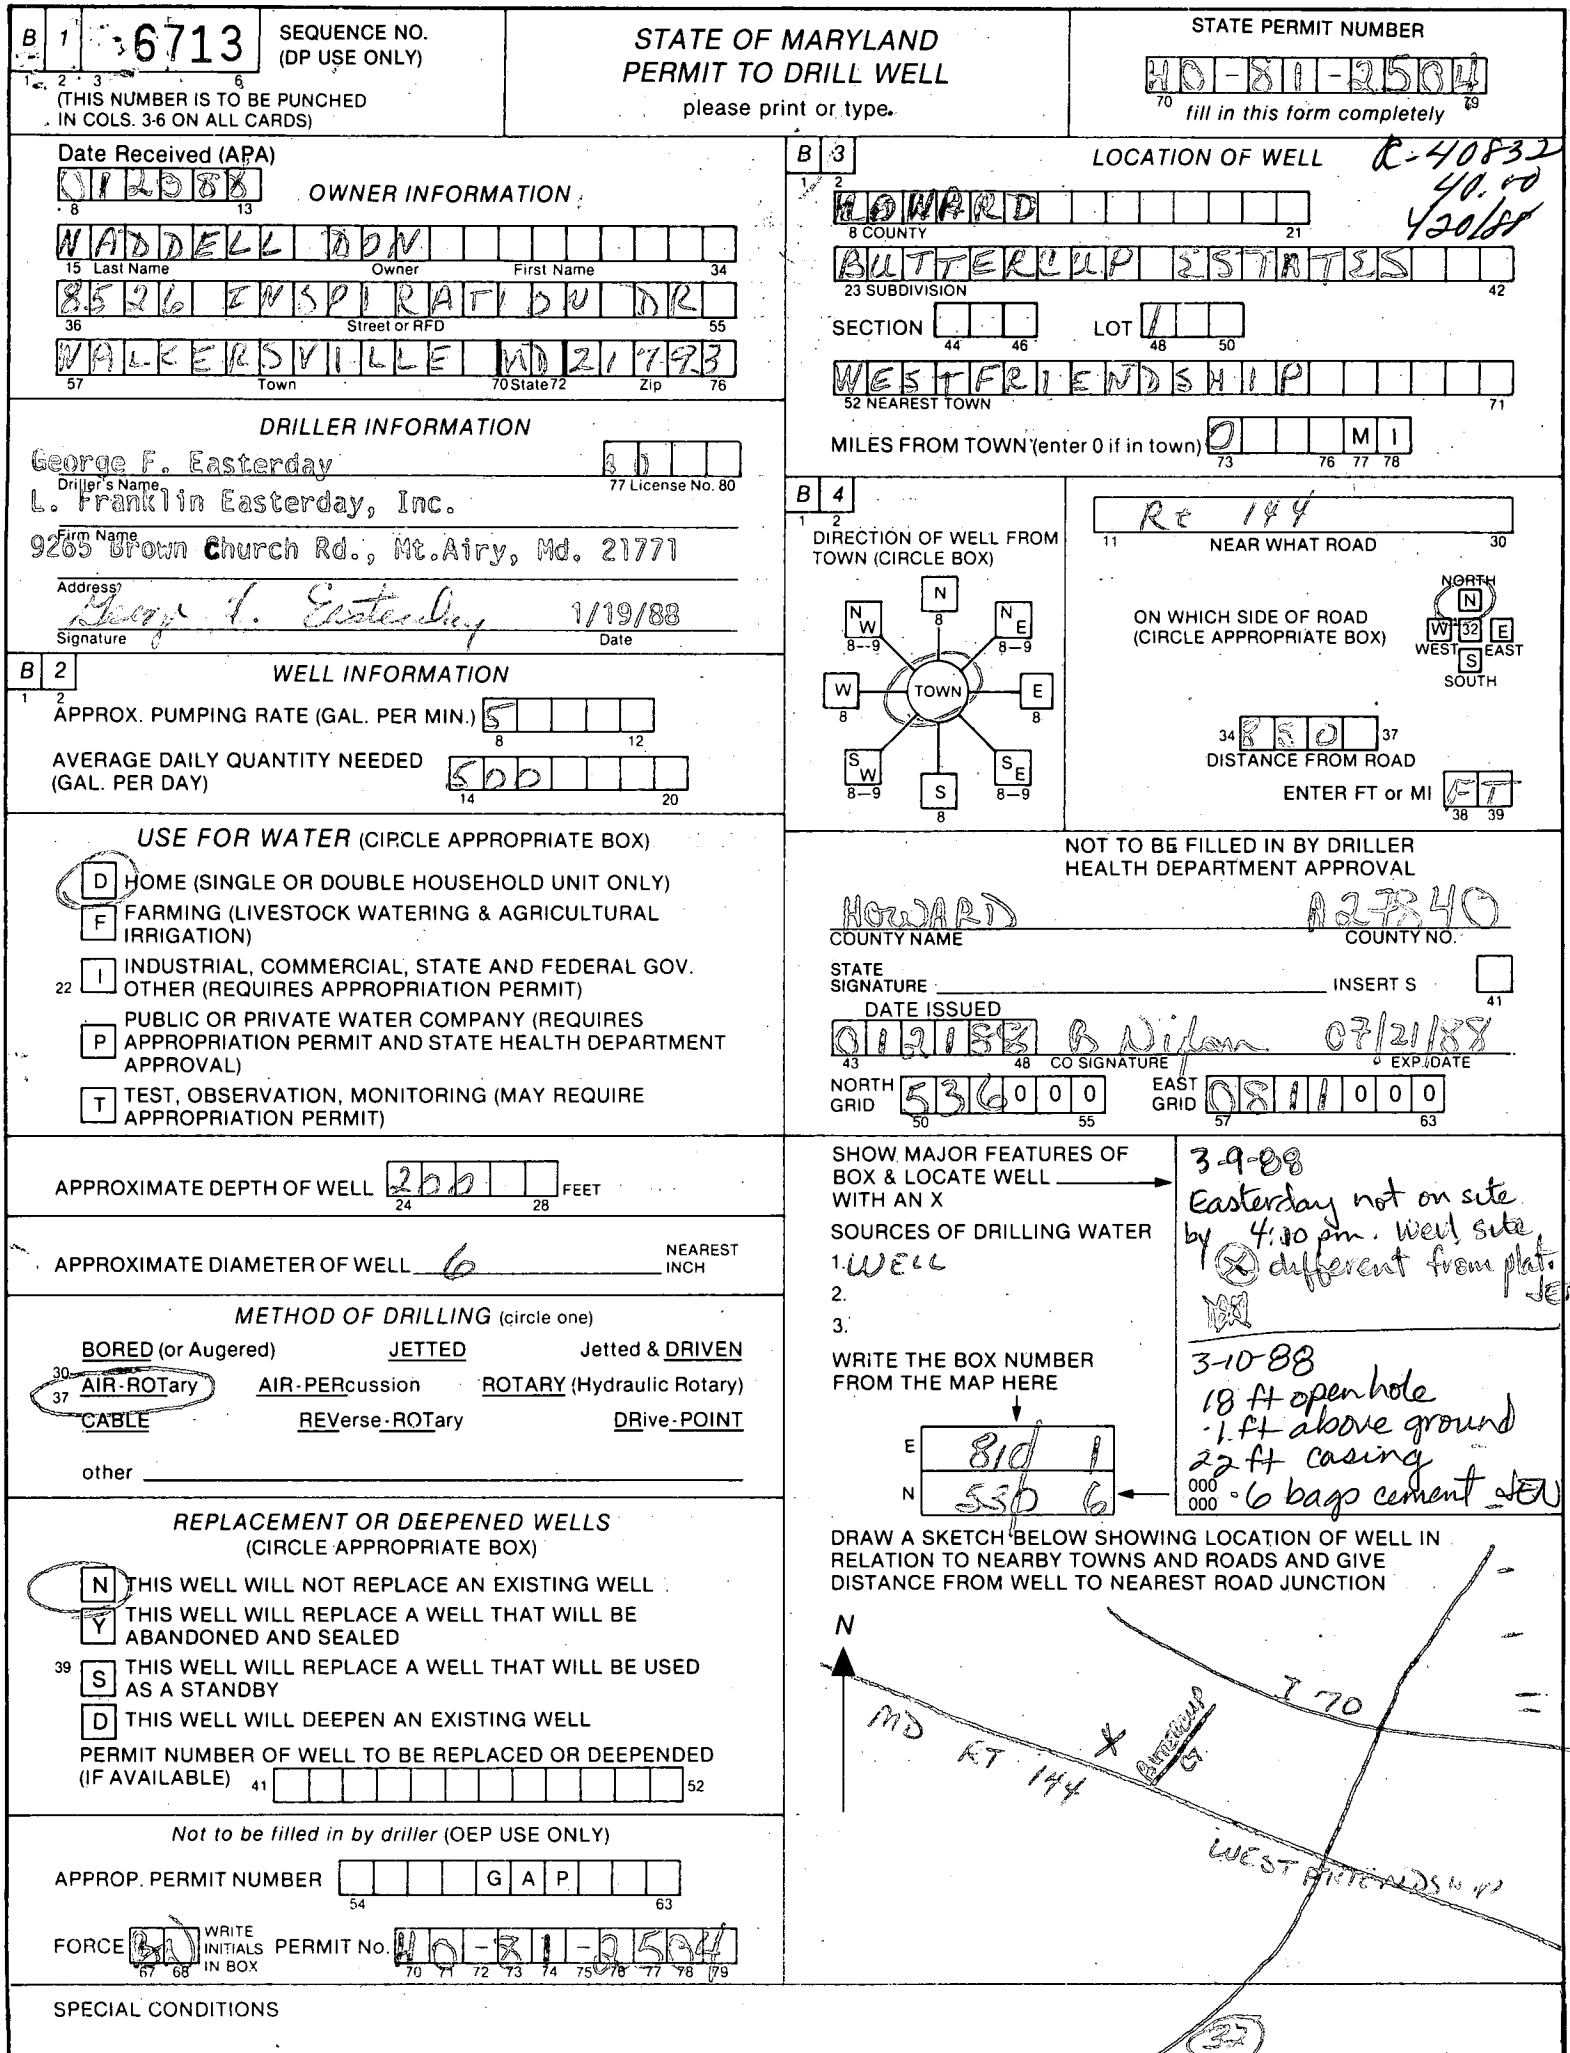 B 1 6713 SEQUENCE NO.
(DP USE ONLY)
1 2 3 6
(THIS NUMBER IS TO BE PUNCHED
IN COLS. 3-6 ON ALL CARDS)
STATE OF MARYLAND
PERMIT TO DRILL WELL
please print or type.
STATE PERMIT NUMBER
HO-81-2504
70 79
fill in this form completely
Date Received (APA)
8 13
OWNER INFORMATION
WADDELL DON
15 Last Name Owner First Name 34
8526 INSPIRATION DR
36 Street or RFD 55
WALKERSVILLE MD 21793
57 Town 70 State 72 Zip 76
DRILLER INFORMATION
George F. Easterday
Driller's Name 77 License No. 80
L. Franklin Easterday, Inc.
Firm Name
9265 Brown Church Rd., Mt.Airy, Md. 21771
Address
George F. Easterday 1/19/88
Signature Date
B 2 WELL INFORMATION
1 2
APPROX. PUMPING RATE (GAL. PER MIN.) 5
8 12
AVERAGE DAILY QUANTITY NEEDED
(GAL. PER DAY) 500
14 20
USE FOR WATER (CIRCLE APPROPRIATE BOX)
D HOME (SINGLE OR DOUBLE HOUSEHOLD UNIT ONLY)
F FARMING (LIVESTOCK WATERING & AGRICULTURAL
IRRIGATION)
22 I INDUSTRIAL, COMMERCIAL, STATE AND FEDERAL GOV.
OTHER (REQUIRES APPROPRIATION PERMIT)
P PUBLIC OR PRIVATE WATER COMPANY (REQUIRES
APPROPRIATION PERMIT AND STATE HEALTH DEPARTMENT
APPROVAL)
T TEST, OBSERVATION, MONITORING (MAY REQUIRE
APPROPRIATION PERMIT)
APPROXIMATE DEPTH OF WELL 200 FEET
24 28
APPROXIMATE DIAMETER OF WELL 6 NEAREST
INCH
METHOD OF DRILLING (circle one)
BORED (or Augered) JETTED Jetted & DRIVEN
30-
37 AIR-ROTary AIR-PERcussion ROTARY (Hydraulic Rotary)
CABLE REVerse-ROTary DRive-POINT
other
REPLACEMENT OR DEEPENED WELLS
(CIRCLE APPROPRIATE BOX)
N THIS WELL WILL NOT REPLACE AN EXISTING WELL
Y THIS WELL WILL REPLACE A WELL THAT WILL BE
ABANDONED AND SEALED
39 S THIS WELL WILL REPLACE A WELL THAT WILL BE USED
AS A STANDBY
D THIS WELL WILL DEEPEN AN EXISTING WELL
PERMIT NUMBER OF WELL TO BE REPLACED OR DEEPENDED
(IF AVAILABLE) 41 52
Not to be filled in by driller (OEP USE ONLY)
APPROP. PERMIT NUMBER G A P
54 63
FORCE BN WRITE
INITIALS
IN BOX PERMIT No. HO-81-2504
67 68 70 71 72 73 74 75 76 77 78 79
SPECIAL CONDITIONS
B 3 LOCATION OF WELL
1 2
R-40832
40.00
HOWARD
8 COUNTY 21
BUTTERCUP ESTATES
23 SUBDIVISION 42
SECTION LOT 1
44 46 48 50
WESTFRIENDSHIP
52 NEAREST TOWN 71
MILES FROM TOWN (enter 0 if in town) 0 M I
73 76 77 78
B 4
1 2
DIRECTION OF WELL FROM
TOWN (CIRCLE BOX)
N
8
NW NE
8--9 8--9
W TOWN E
8 8
SW SE
8--9 8--9
S
8
Rt 144
11 NEAR WHAT ROAD 30
ON WHICH SIDE OF ROAD
(CIRCLE APPROPRIATE BOX)
NORTH
N
W 32 E
WEST EAST
S
SOUTH
34 850 37
DISTANCE FROM ROAD
ENTER FT or MI FT
38 39
NOT TO BE FILLED IN BY DRILLER
HEALTH DEPARTMENT APPROVAL
HOWARD A27840
COUNTY NAME COUNTY NO.
STATE
SIGNATURE INSERT S
41
DATE ISSUED
012188 B Nixon 07/21/88
43 48 CO SIGNATURE EXP. DATE
NORTH
GRID 536000 EAST
GRID 0811000
50 55 57 63
SHOW MAJOR FEATURES OF
BOX & LOCATE WELL
WITH AN X
SOURCES OF DRILLING WATER
1. WELL
2.
3.
WRITE THE BOX NUMBER
FROM THE MAP HERE
E 810 1
N 530 6
3-9-88
Easterday not on site
by 4:10 pm. Well site
different from plat.
3-10-88
18 ft open hole
1 ft above ground
22 ft casing
000
000 6 bags cement JEN
DRAW A SKETCH BELOW SHOWING LOCATION OF WELL IN
RELATION TO NEARBY TOWNS AND ROADS AND GIVE
DISTANCE FROM WELL TO NEAREST ROAD JUNCTION
N
I 70
MD RT 144
X
BUTTERCUP
CT.
WEST FRIENDSHIP
32